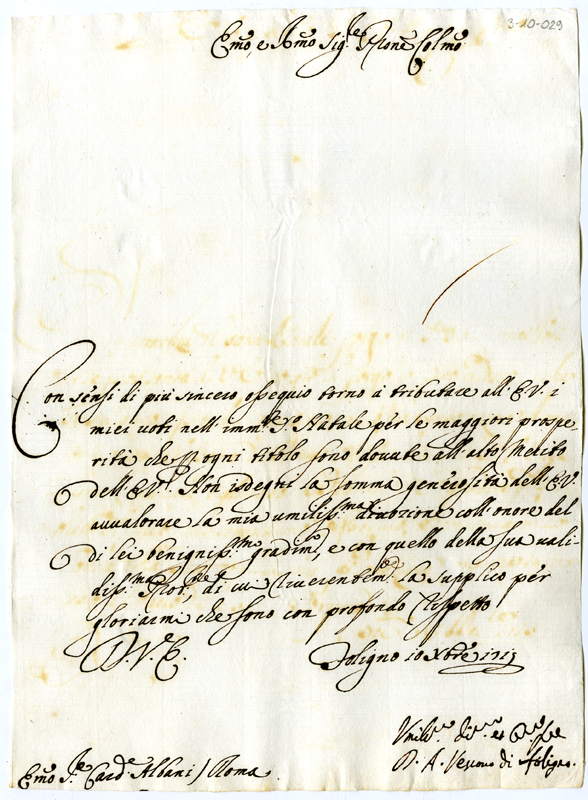 3-10-029
Emo, e Rmo Sig.re Prone Colmo
Con sensi di più sincero ossequio torno à tributare all'E.V. i
miei voti nell'imm.te S. Natale pèr le maggiori prospe-
rità che p ogni titolo sono dovute all'alto Merito
dell'E.V. Non isdegni la somma generosità dell'E.V.
avvalorare la mia umiliss.ma divozione coll'onore del
di lei benigniss.mo gradim.to, e con quello della sua vali-
diss.ma Prot.ne, di cui riverentem.te la supplico pèr
gloriarmi che sono con profondo rispetto
D.V.E.
Foligno 10 Xbre
Umil.mo div.mo et
D. A. Vescovo di Foligno.
Emo S.re Card.e Albani / Roma.